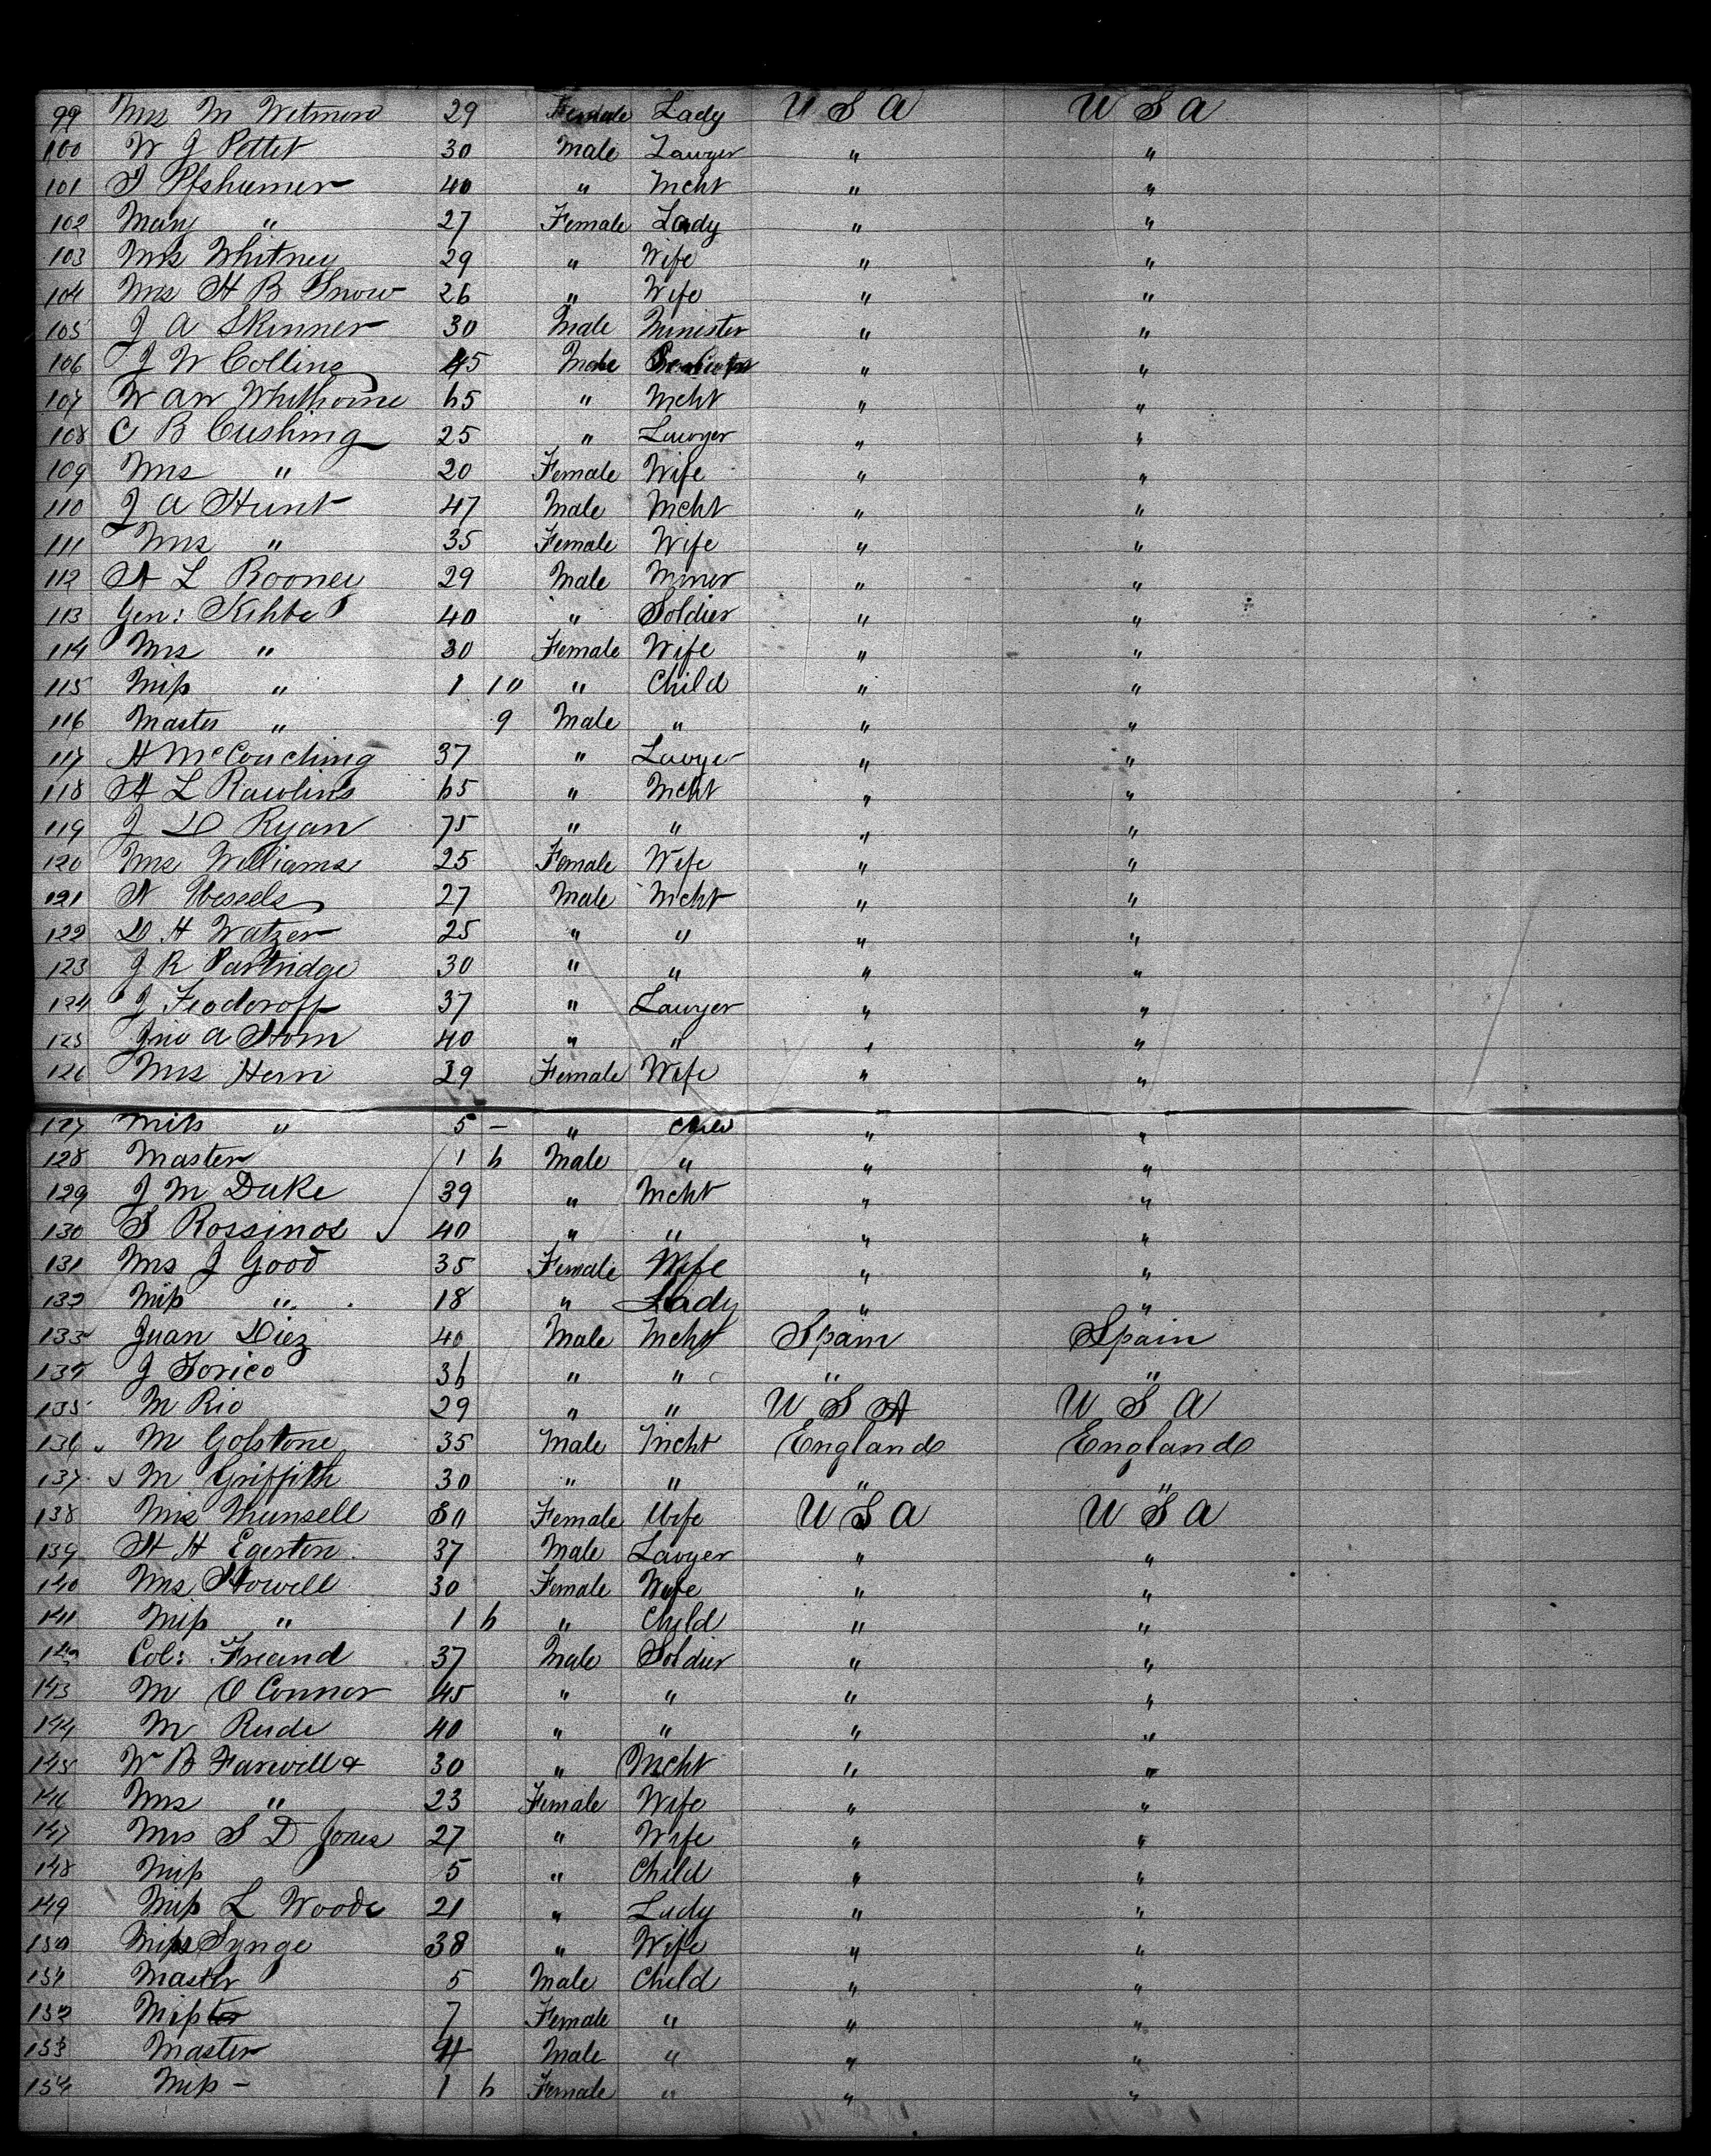 99 Mrs M Wetmore 29 Female Lady U S A U S A
100 W J Pettet 30 Male Lawyer " "
101 40 " Mcht " "
102 Mary " 27 Female Lady " "
103 Mrs Whitney 29 " Wife " "
104 Mrs H B Snow 26 " Wife " "
105 J A Skinner 30 Male Minister " "
106 J W Collins 45 Male " "
107 W W Whithorne 65 " Mcht " "
108 C B Cushing 25 " Lawyer " "
109 Mrs " 20 Female Wife " "
110 J A Hunt 47 Male Mcht " "
111 Mrs " 35 Female Wife " "
112 A L Rooney 29 Male Miner " "
113 Gen: 40 " Soldier " "
114 Mrs " 30 Female Wife " "
115 Miss " 1 10 " Child " "
116 Master " 9 Male " " "
117 H 37 " Lawyer " "
118 H L Rawlins 65 " Mcht " "
119 J D Ryan 75 " " " "
120 Mrs Williams 25 Female Wife " "
121 H Wessels 27 Male Mcht " "
122 D H Watzer 25 " " " "
123 J R Partridge 30 " " " "
124 J Feodoroff 37 " Lawyer " "
125 Jno A Hom 40 " " " "
126 Mrs 29 Female Wife " "
127 Miss " 5 – " " "
128 Master 1 6 Male " " "
129 J M Duke 39 " Mcht " "
130 S 40 " " " "
131 Mrs J Good 35 Female Wife " "
132 Miss " 18 " Lady " "
133 Juan Diez 40 Male Mcht Spain Spain
134 J Torico 36 " " " "
135 M Rio 29 " " U S A U S A
136 M Golstone 35 Male Mcht England England
137 M Griffith 30 " " " "
138 Mrs Munsell Female Wife U S A U S A
139 H H Egerton 37 Male Lawyer " "
140 Mrs Howell 30 Female Wife " "
141 Miss " 1 6 " Child " "
142 Col: Friend 37 Male Soldier " "
143 M O Connor 45 " " " "
144 M Rude 40 " " " "
145 W B Farwell & 30 " Mcht " "
146 Mrs " 23 Female Wife " "
147 Mrs S D Jones 27 " Wife " "
148 Miss 5 " Child " "
149 Miss L Woods 21 " Lady " "
150 Synge 38 " Wife " "
151 Master 5 Male Child " "
152 Miss 7 Female " " "
153 Master 4 Male " " "
154 Miss – 1 6 Female " " "